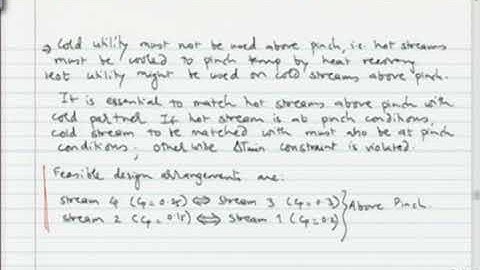 → Cold utility must not be used above pinch, i.e. hot streams
must be cooled to pinch temp by heat recovery
Hot utility might be used on cold streams above pinch.
It is essential to match hot streams above pinch with
cold partner If hot stream is at pinch conditions,
cold stream to be matched with must also be at pinch
conditions; otherwise ΔTmin constraint is violated.
Feasible design arrangements are:
stream 4 (Cp=0.25) ⇔ stream 3 (Cp=0.3) } Above Pinch.
stream 2 (Cp=0.15) ⇔ stream 1 (Cp=0.2)